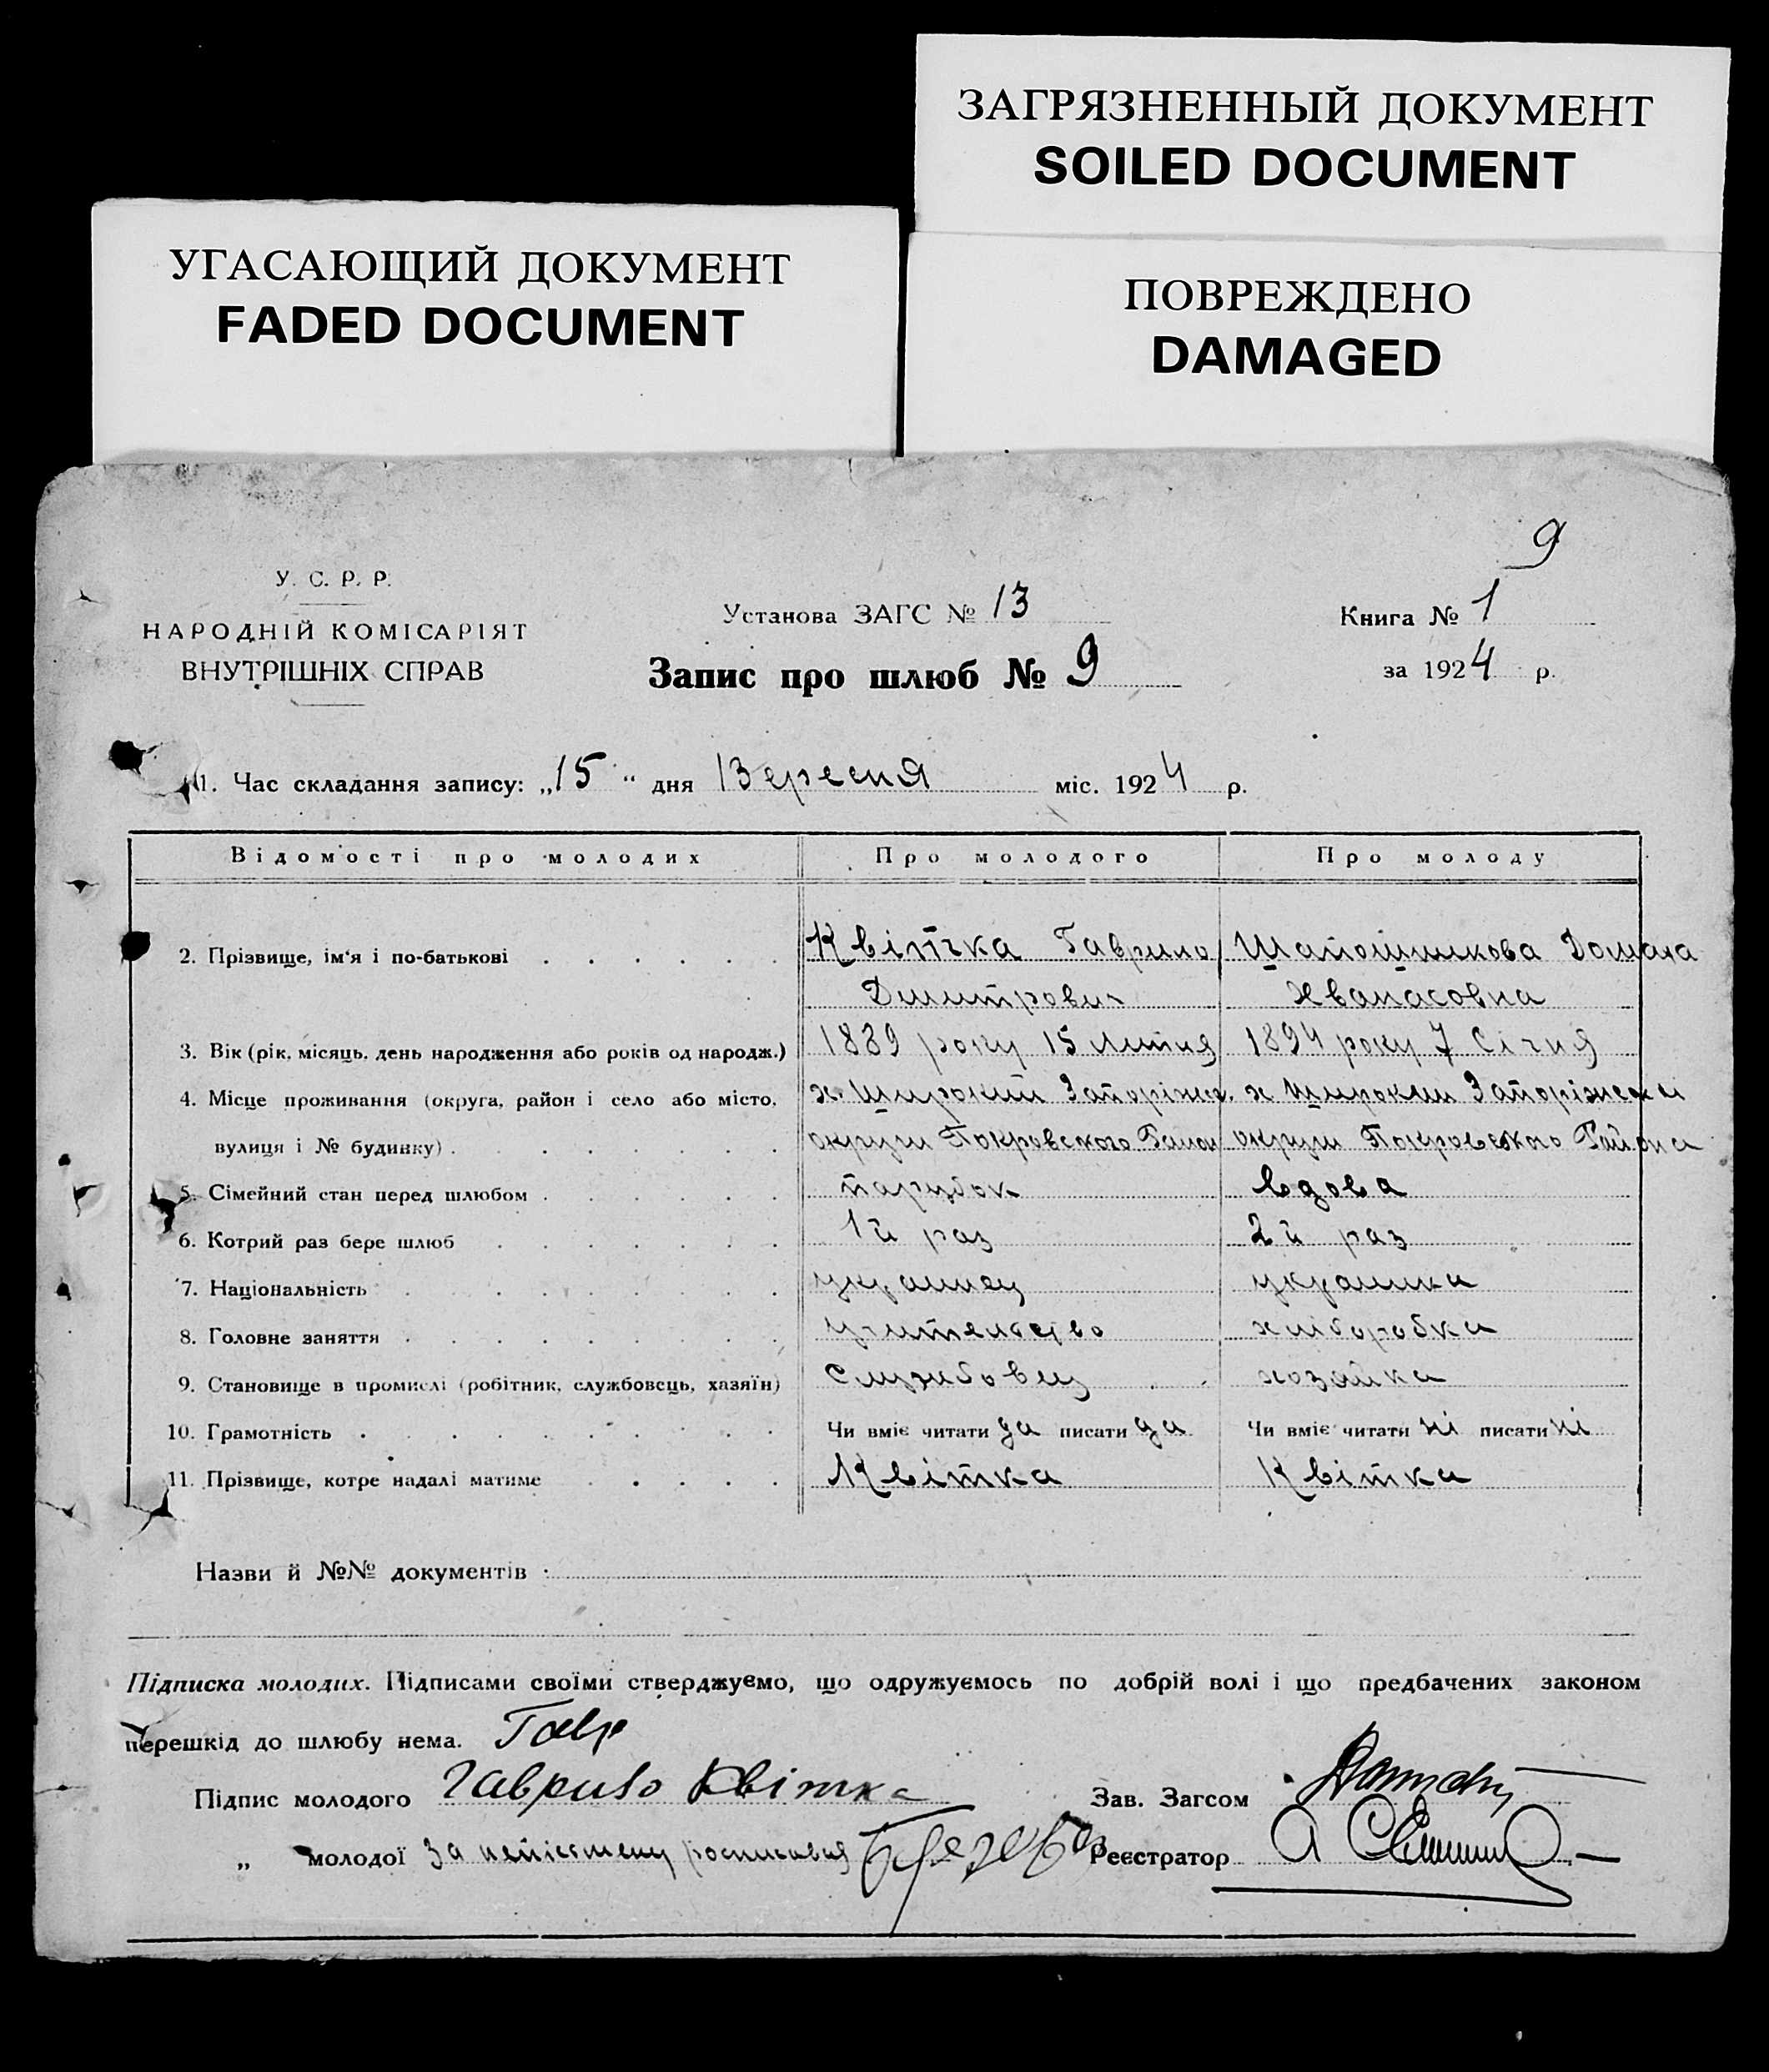 ЗАГРЯЗНЕННЫЙ ДОКУМЕНТ
SOILED DOCUMENT
УГАСАЮЩИЙ ДОКУМЕНТ
FADED DOCUMENT
ПОВРЕЖДЕНО
DAMAGED
9
У. С. Р. Р.
НАРОДНІЙ КОМІСАРІЯТ
ВНУТРІШНІХ СПРАВ
Установа ЗАГС № 13
Запис про шлюб № 9
Книга № 1
за 1924 р.
1. Час складання запису: „15" дня Вересня міс. 1924 р.
Відомості про молодих Про молодого Про молоду
2. Прізвище, ім'я і по-батькові Квітка Гаврило Шапошникова Домаха
Дмитрович Хванасовна
3. Вік (рік, місяць, день народження або років од народж.) 1889 року 15 Липня 1894 року 7 Січня
4. Місце проживання (округа, район і село або місто, х. Широкий Запоріжск. х Широкий Запоріжскі
вулиця і № будинку) округи Покровского Район округи Покровского Района
5. Сімейний стан перед шлюбом парубок вдова
6. Котрий раз бере шлюб 1й раз 2й раз
7. Національність украинец украинка
8. Головне заняття учительство хліборобка
9. Становище в промислі (робітник, службовець, хазяїн) службовец хозяйка
10. Грамотність Чи вміє читати да писати да Чи вміє читати ні писати ні
11. Прізвище, котре надалі матиме Квітка Квітка
Назви й №№ документів
Підписка молодих. Підписами своїми стверджуємо, що одружуємось по добрій волі і що предбачених законом
перешкід до шлюбу нема. Гавр
Підпис молодого Гаврило Квітка Зав. Загсом
„ молодої За непісьмену росписавая Реєстратор